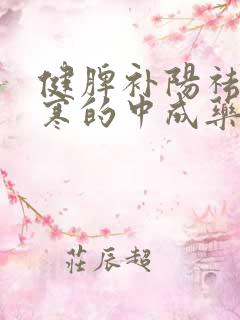 健脾补陽祛
寒的中成藥
莊辰超